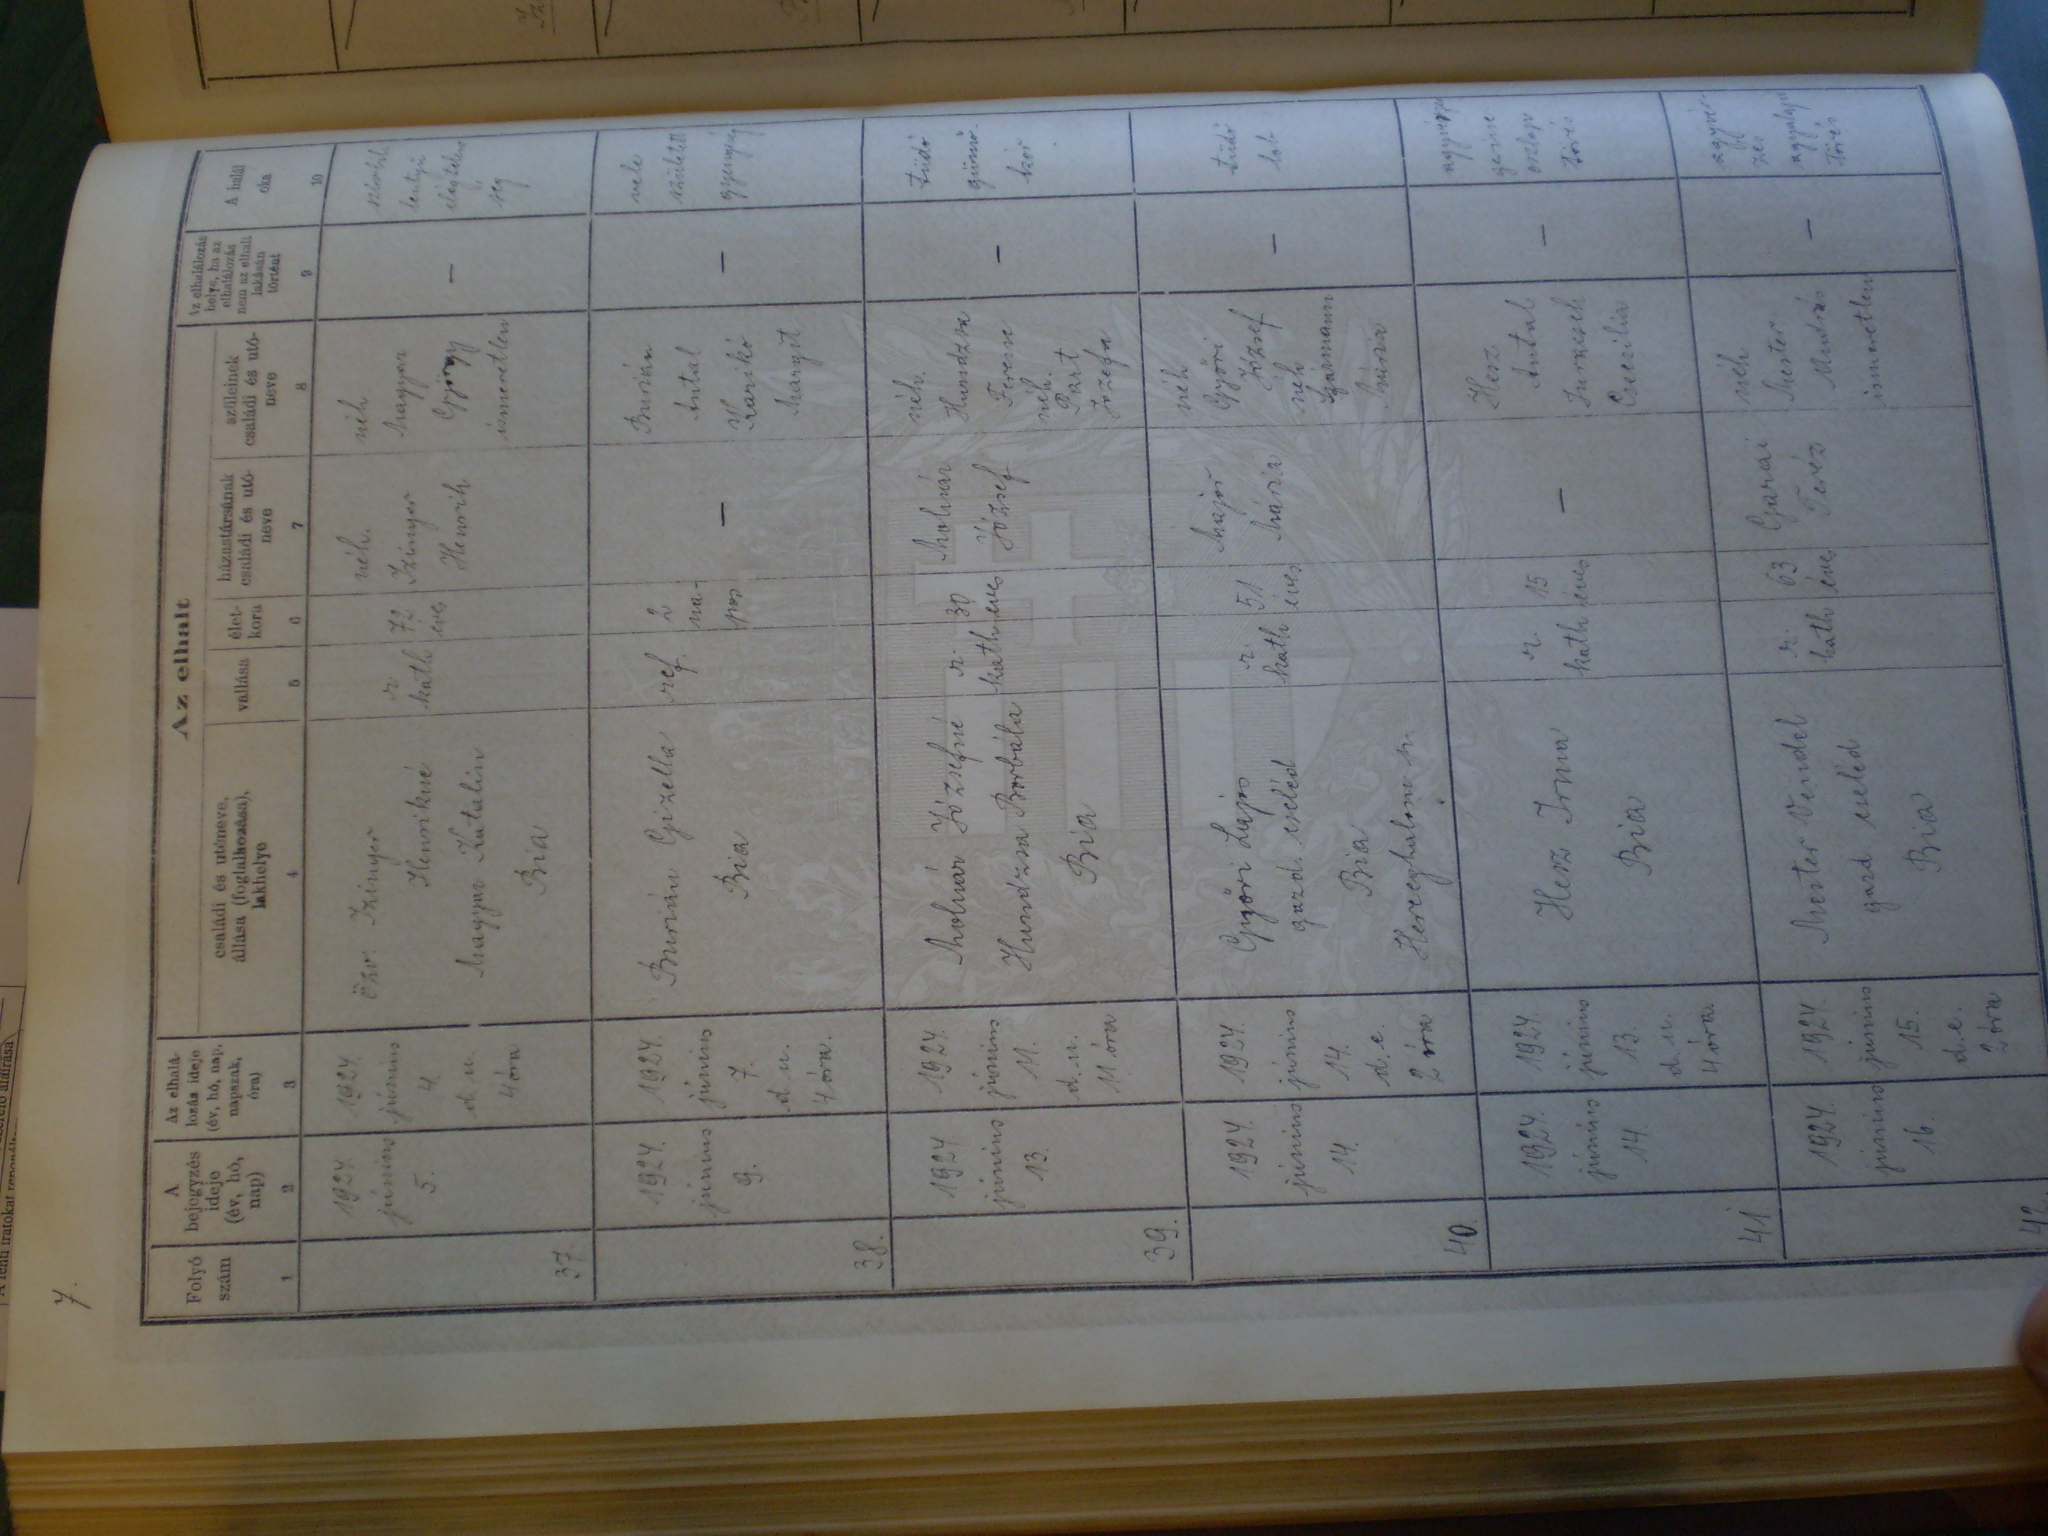 7.
Az elhalt
Folyó
szám
1
A
bejegyzés
ideje
(év, hó,
nap)
2
Az elhalá-
lozás ideje
(év, hó, nap,
napszak,
óra)
3
családi és utóneve,
állása (foglalkozása),
lakhelye
4
vallása
5
élet-
kora
6
házastársának
családi és utó-
neve
7
szüleinek
családi és utó-
neve
8
Az elhalálozás
helye, ha az
elhalálozás
nem az elhalt
lakásán
történt
9
A halál
oka
10
37.
1924.
június
5.
1924.
június
4
d. u.
4 óra
Özv. Izinger
Henrikné
Magyar Katalin
Bia
r.
kath
72
éves
néh.
Izinger
Henrik
néh.
Magyar
György
ismeretlen
—
38.
1924.
június
9.
1924.
június
7.
d. u.
4 óra.
Burián Gizella
Bia
ref.
2
na-
pos
—
Burián
Antal
Karikó
Margit
—
vele
született
gyengeség
39.
1924
június
13.
1924.
június
11.
d. u.
11 óra
Molnár Józsefné
Hundzsa Borbála
Bia
r.
kath
30
éves
Molnár
József
néh.
Hundzsa
Ferenc
néh.
Part
Jozefa
—
tüdő
gümő-
kór
40.
1924.
június
14.
1924.
június
14.
d. e.
2 óra
Győri Lajos
gazd. cseléd
Bia
Herceghalom p.
r.
kath
51
éves
Major
Mária
néh
Győri
József
néh
Mária
—
tüdő
lob
41
1924.
június
14.
1924.
június
13.
d. u.
4 óra
Hesz Irma
Bia
r.
kath
15
éves
—
Hesz
Antal
Cecilia
—
gerinc
oszlop
törés
42.
1924.
június
16.
1924.
június
15.
d. e.
2 óra
Mester Vendel
gazd. cseléd
Bia
r.
kath
63
éves
Garai
Teréz
néh
Mester
András
ismeretlen
—
törés